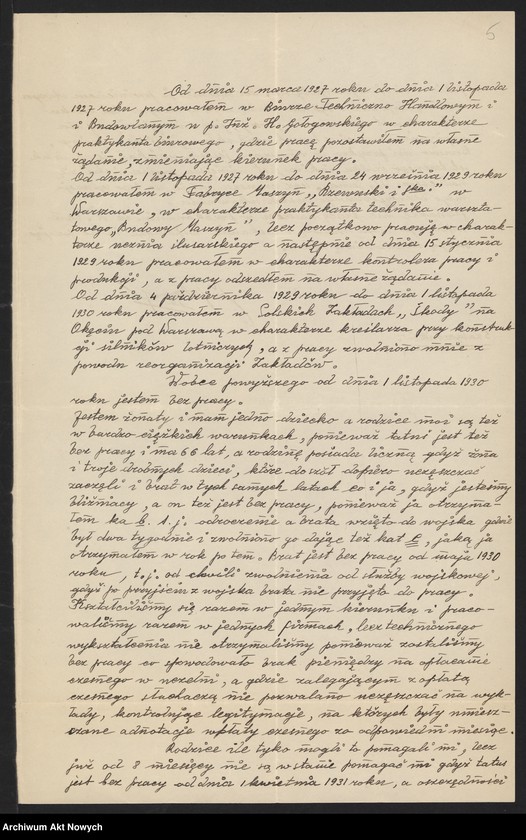 5
Od dnia 15 marca 1927 roku do dnia 1 listopada
1927 roku pracowałem w Biurze Techniczno Handlowym i
i Budowlanym u p. Inż. H. Gołogowskiego w charakterze
praktykanta biurowego, gdzie pracę pozostawiłem na własne
żądanie, zmieniając kierunek pracy.
Od dnia 1 listopada 1927 roku do dnia 24 września 1929 roku
pracowałem w Fabryce Maszyn „Rzewuski i Ska." w
Warszawie, w charakterze praktykanta technika warszta-
towego „Budowy Maszyn", lecz początkowo pracuję w charak-
terze ucznia ślusarskiego a następnie od dnia 15 stycznia
1929 roku pracowałem w charakterze kontrolera pracy i
produkcji, a z pracy odszedłem na własne żądanie.
Od dnia 4 października 1929 roku do dnia 1 listopada
1930 roku pracowałem w Polskich Zakładach „Skody" na
Okęciu pod Warszawą w charakterze kreślarza przy konstruk-
cji silników lotniczych, a z pracy zwolniono mnie z
powodu reorganizacji Zakładów.
Wobec powyższego od dnia 1 listopada 1930
roku jestem bez pracy.
Jestem żonaty i mam jedno dziecko a rodzice moi są też
w bardzo ciężkich warunkach, ponieważ tatuś jest też
bez pracy i ma 66 lat, a rodzinę posiada liczną gdyż żona
i troje drobnych dzieci, które do szkół dopiero uczęszczać
zaczęli i brat w tych samych latach co i ja, gdyż jesteśmy
bliźniacy, a on też jest bez pracy, ponieważ ja otrzyma-
łem ka B. t. j. odroczenie a brata wzięto do wojska gdzie
był dwa tygodnie i zwolniono go dając też kat , jaką ja
otrzymałem w rok po tem. Brat jest bez pracy od maja 1930
roku, t. j. od chwili zwolnienia od służby wojskowej,
gdyż po przyjściu z wojska brata nie przyjęto do pracy.
Kształciliśmy się razem w jednym kierunku i praco-
waliśmy razem w jednych firmach, lecz technicznego
wykształcenia nie otrzymaliśmy ponieważ zostaliśmy
bez pracy co spowodowało brak pieniędzy na opłacanie
czesnego w uczelni, a gdzie zalegającym z opłatą
czesnego słuchaczą nie pozwalano uczęszczać na wyk-
łady, kontrolując legitymacje, na których były umiesz-
czane adnotacje wpłaty czesnego za odpowiedni miesiąc.
Rodzice ile tylko mogli to pomagali mi, lecz
już od 8 miesięcy nie są w stanie pomagać mi gdyż tatuś
jest bez pracy od dnia 1 kwietnia 1931 roku, a oszczędności
Archiwum Akt Nowych